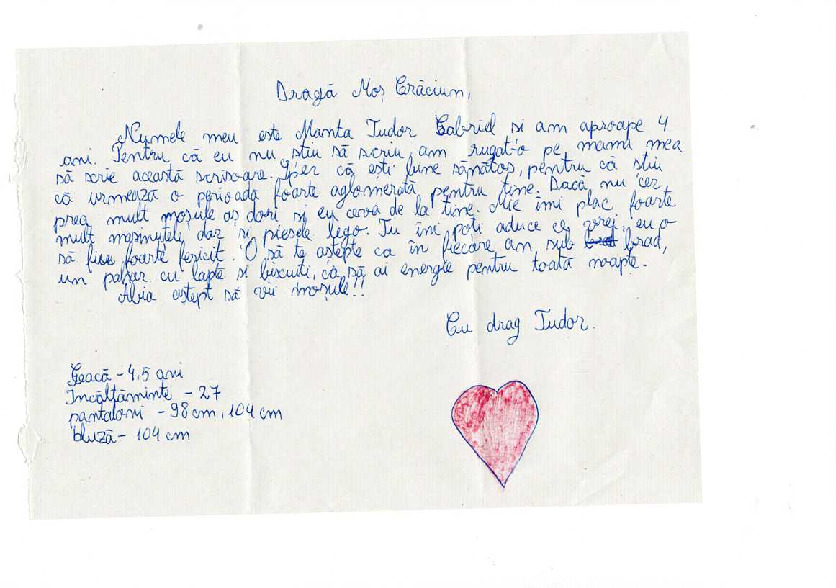 Dragă Moș Crăciun,
Numele meu este Manta Tudor Gabriel si am aproape 4
ani. Pentru că eu nu stiu să scriu, am rugat-o pe mami mea
să scrie această scrisoare. Sper că esti bine sănătos, pentru că stiu
că urmează o perioadă foarte aglomerată pentru tine. Dacă nu cer
prea mult moșule aș dori si eu ceva de la tine. Mie îmi plac foarte
mult mașinuțele dar si piesele lego. Tu îmi poti aduce ce vrei, eu o
să fiu foarte fericit. O să te aștepte ca în fiecare an, sub brad,
un pahar cu lapte si biscuiti, ca să ai energie pentru toată noapte.
Abia astept să vii moșule!!
Cu drag Tudor.
Geacă - 4,5 ani
Incălțăminte - 27
pantaloni - 98 cm, 104 cm
bluză - 104 cm